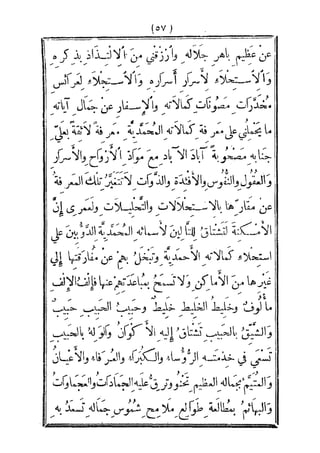 (٥٧)
عن عظيم باهر جلاله وأرزقني من الالتذاذ بذكره
والاستجلاء لأسرار أسراره والاستجلاء لعرائس
مخدرات مصونات كمالاته والإسفار عن جمال آياته
ما يحملني على معرفة كمالاته المحمدية معرفة لائقة بعلي
جنابه مصحوبة آباد الآباد مع مواد الأرواح والأسرار
والعقول والنفوس والأفئدة والذوات لا تتغير تلك المعرفة
عن مقارها بالاستحلالات والتحليلات ولعمرى إن
الأمكنة لتشتاق للتالين لأسمائه المحمدية الدؤبين على
استجلاء كمالاته الأحمدية وتبخل بهم عن مفارقتها إلى
غيرها من الأماكن ولا تسمح بمباعدتهم عنها فإلف الإلف
مألوف وخليط الخليط خليط وحبيب الحبيب حبيب
والشيق بالحبيب تشتاق إليه الأكوان والوله بالحبيب
تسعى في خدمته الرؤساء والكبراء والعرفاء والأعيان
والمتيم بجماله العظيم تحنو وترق عليه الجمادات والعجماوات
والبهائم بمطالعة طوالع ملامح شموس جماله تسعد به